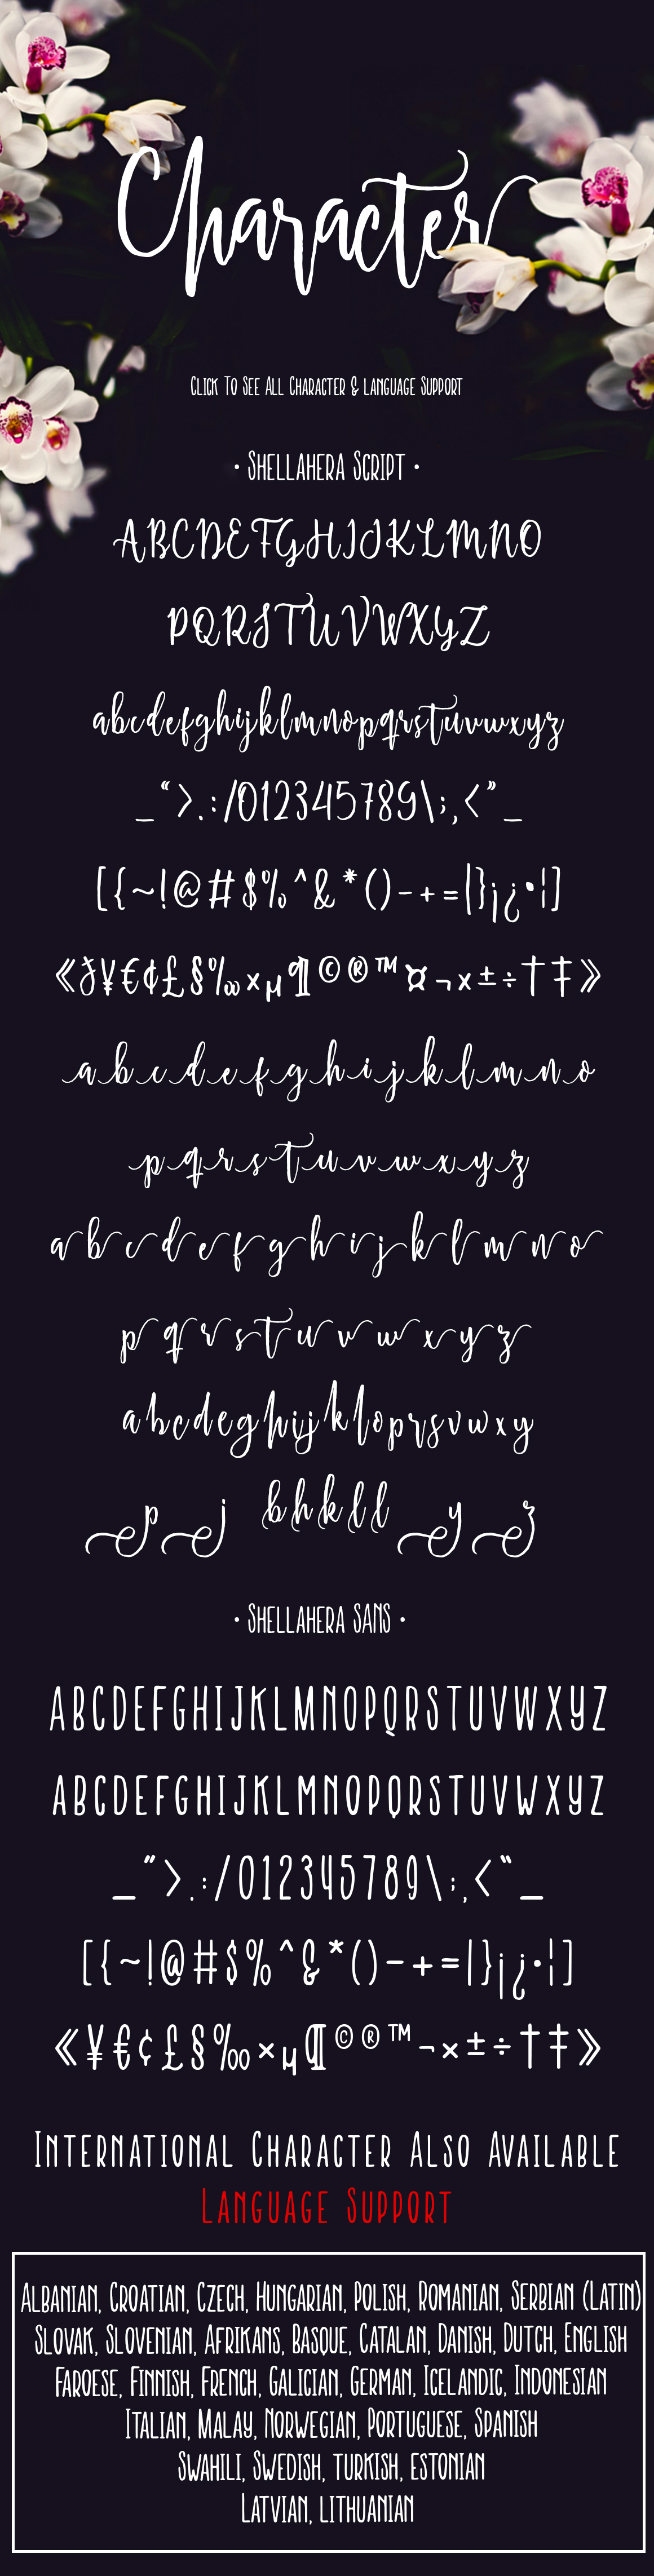 Character
Click To See All Character & language Support
• Shellahera Script •
ABCDEFGHIJKLMNO
PQRSTUVWXYZ
abcdefghijklmnopqrstuvwxyz
_“>.:/012345789\;,<”_
[{~!@#$%^&*()-+=|}¡¿•¦]
«¥€¢£§‰×µ¶©®™¤¬×±÷†‡»
abcdefghijklmno
pqrstuvwxyz
abcdefghijklmno
pqrstuvwxyz
abcdeghijkloprsvwxy
pj bhkll yz
• Shellahera Sans •
ABCDEFGHIJKLMNOPQRSTUVWXYZ
ABCDEFGHIJKLMNOPQRSTUVWXYZ
_”>.:/012345789\;,<“_
[{~!@#$%^&*()-+=|}¡¿•¦]
«¥€¢£§‰×µ¶©®™¬×±÷†‡»
International Character Also Available
Language Support
Albanian, Croatian, Czech, Hungarian, Polish, Romanian, Serbian (Latin)
Slovak, Slovenian, Afrikans, Basque, Catalan, Danish, Dutch, English
Faroese, Finnish, French, Galician, German, Icelandic, Indonesian
Italian, Malay, Norwegian, Portuguese, Spanish
Swahili, Swedish, turkish, estonian
Latvian, lithuanian